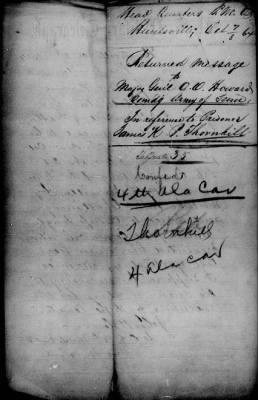 Head Quarters
Huntsville, Oct
Returned message
to
Major Genl O. O. Howard
Comdg Army of Tenn.
In reference to Prisoner
James K. P. Thornhill
35
Confed
4th Ala Cav
Thornhill
4 Ala Cav